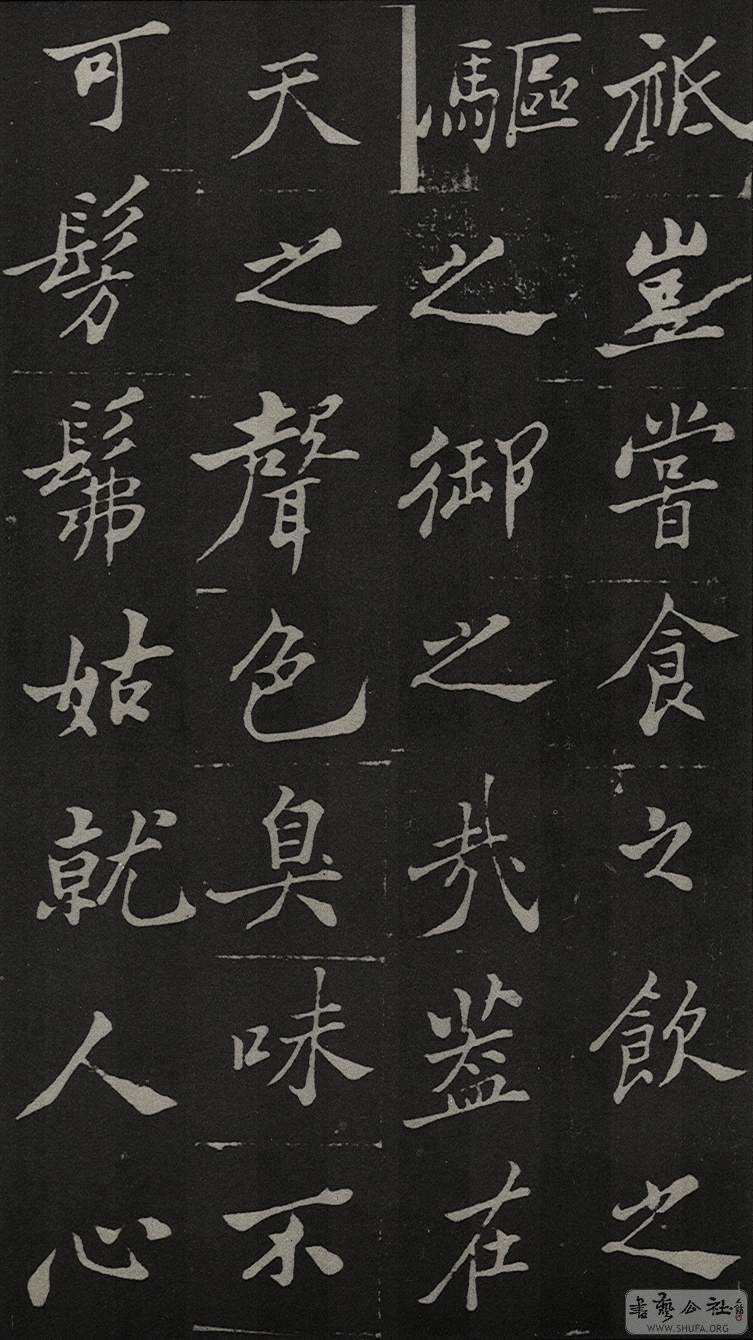 祗豈嘗食之飲之
驅之御之哉蓋在
天之聲色臭味不
可髣髴姑就人心
書藝公社
WWW.SHUFA.ORG